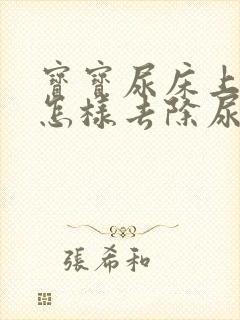 寶寶尿床上
怎樣去除尿
張希和